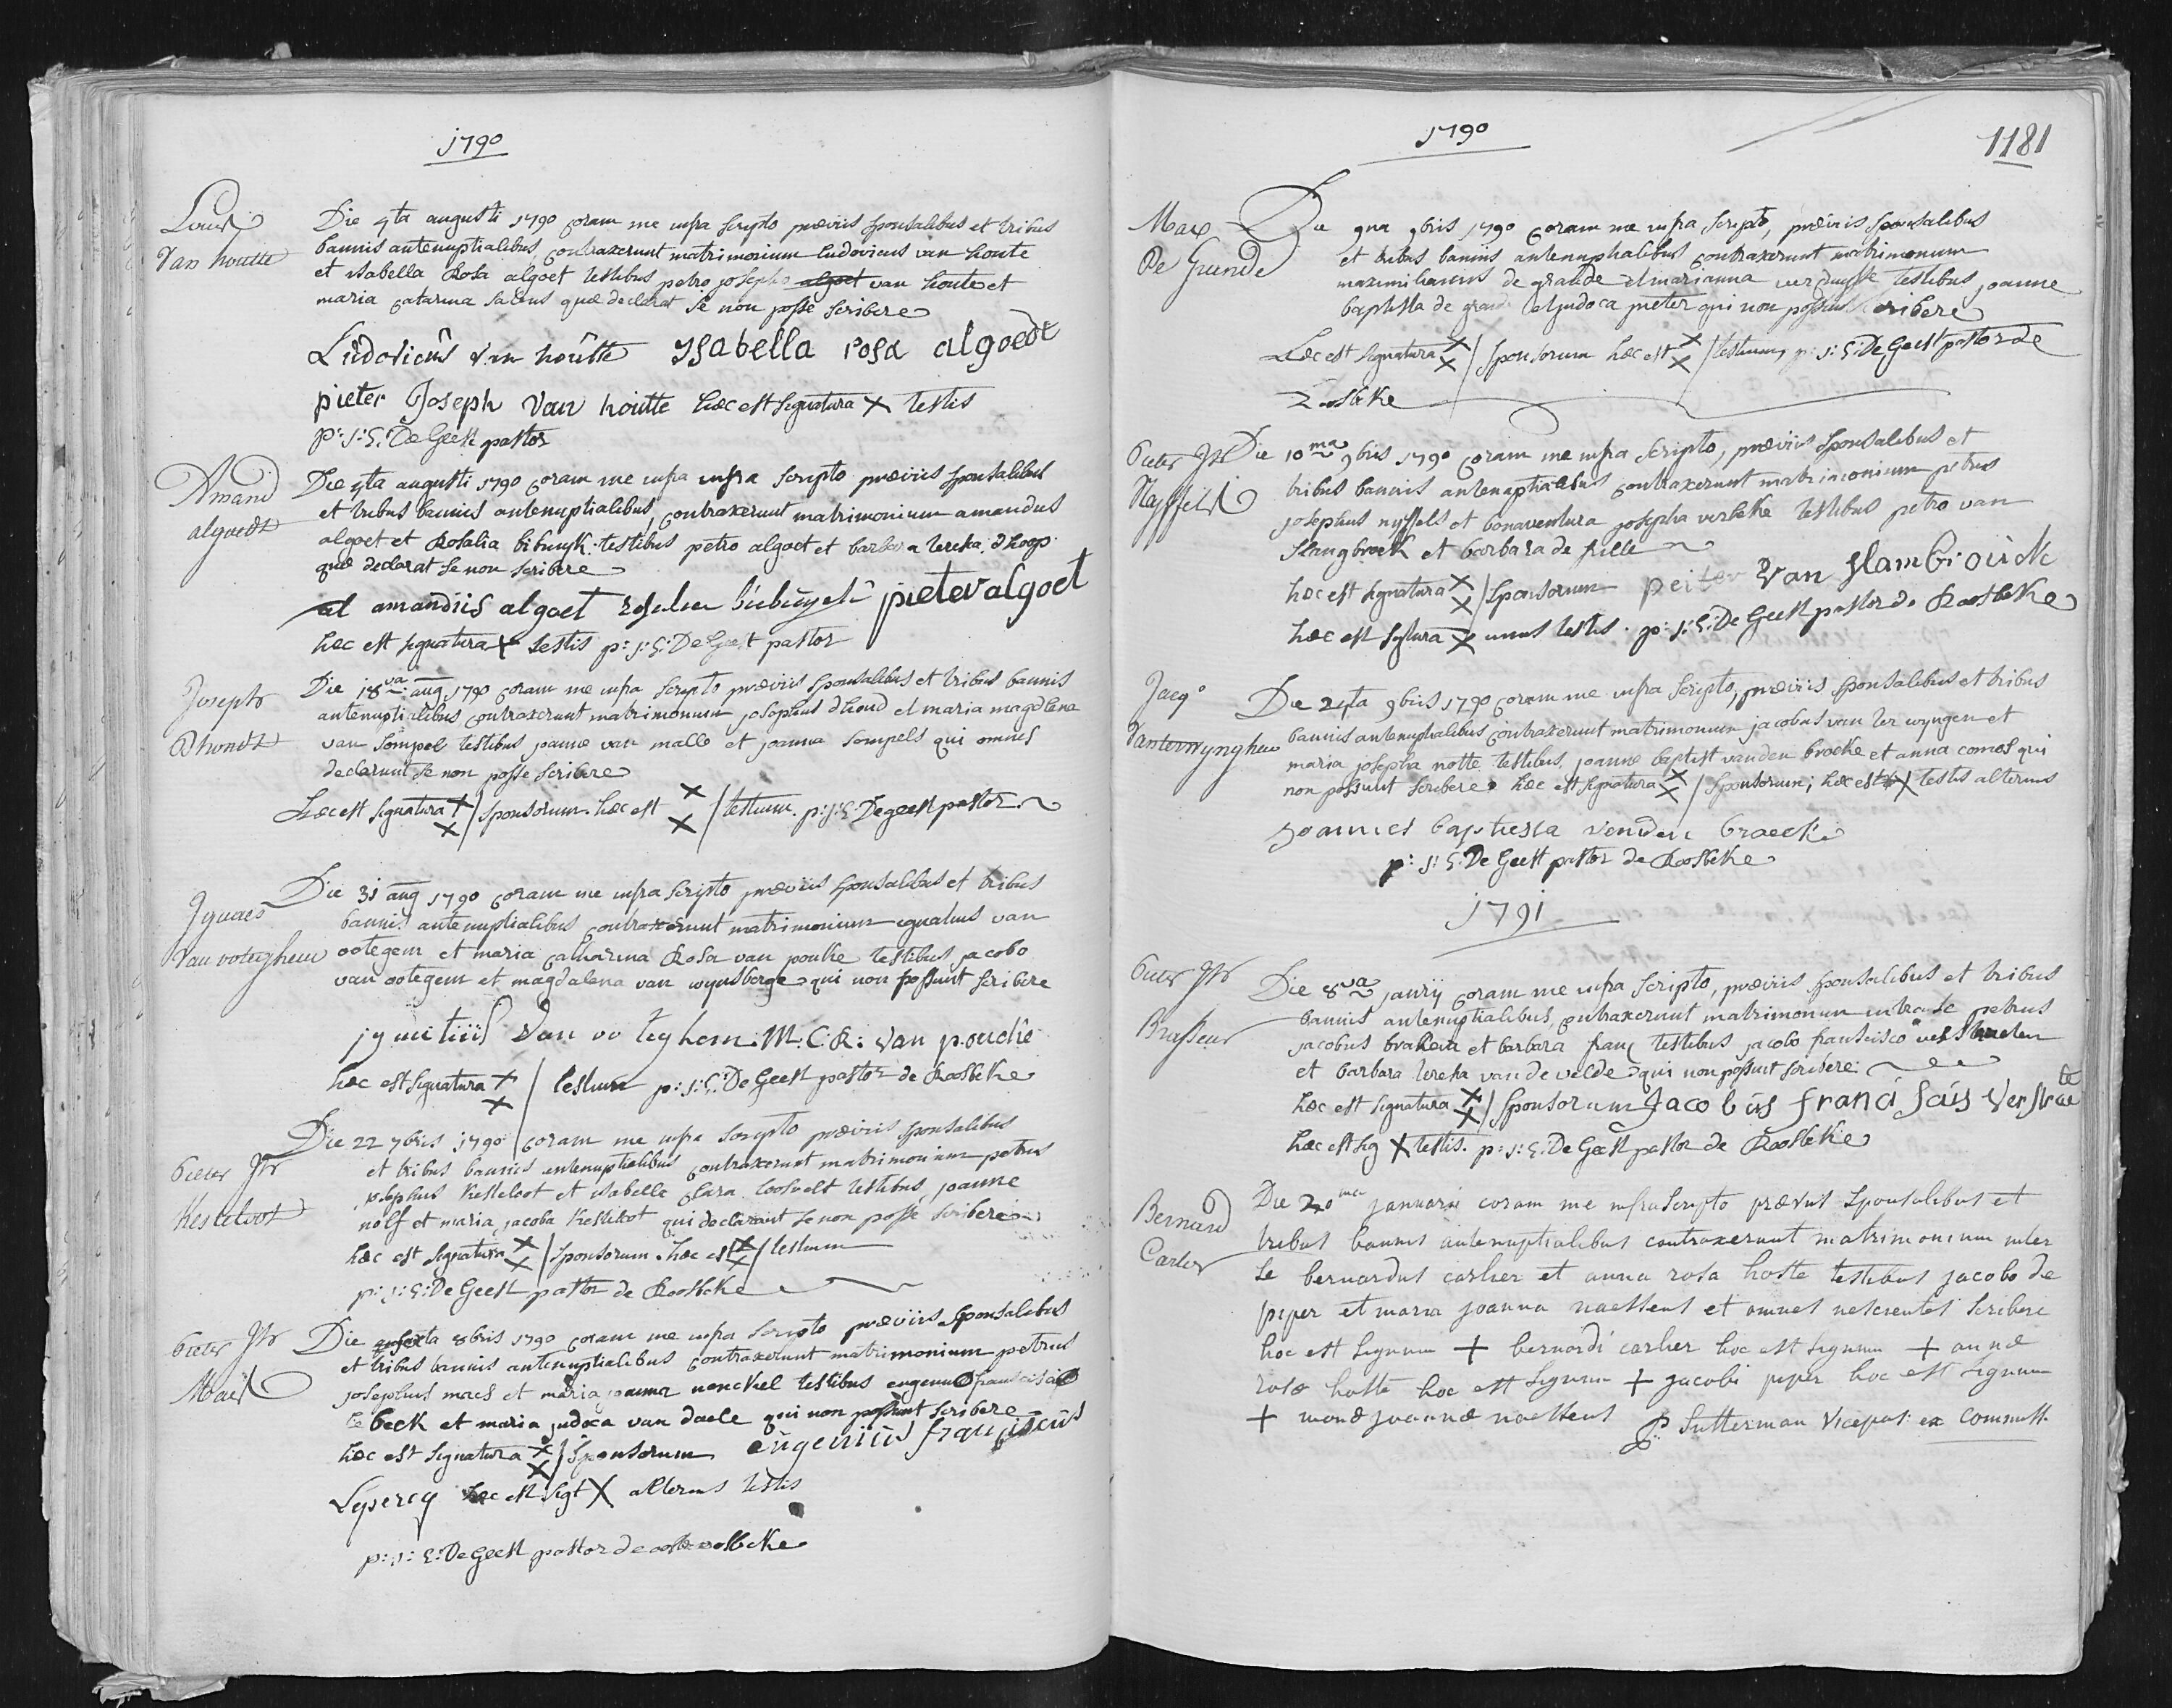 1790
Louis
Van houtte
Die 4ta augusti 1790 coram me infra scripto præviis sponsalibus et tribus
bannis antenuptialibus, contraxerunt matrimonium ludovicus van houte
et isabella Rosa algoet testibus petro josepho algoet van houte et
maria catarina quæ declarat se non posse scribere
Lúdovicús Van hoútte ysabella rosa algoedt
pieter Joseph Van houtte hæc est signatura X testis
p: j: S: De Geest pastor
Amand
algoedt
Die 4ta augusti 1790 coram me infra infra scripto præviis sponsalibus
et tribus bannis antenuptialibus, contraxerunt matrimonium amandus
algoet et Rosalia bibuyk testibus petro algoet et barbara teresa d'hoop
quæ declarat se non scribere
al amandús algoet pieter algoet
hæc est signatura X testis p: j: S: De Geest pastor
Joseph
Dhondt
Die 18va aug 1790 coram me infra scripto præviis sponsalibus et tribus bannis
antenuptialibus contraxerunt matrimonium josephus dhond et maria magdlena
van Sompel testibus joanne van malle et joanna Sompels qui omnes
declarunt se non posse scribere
hæc est signatura X X / sponsorum. hæc est X X / testium. p: j: S: De geest pastor
Ignaes
Van ooteghem
Die 31 aug 1790 coram me infra scripto præviis sponsalibus et tribus
bannis antenuptialibus contraxerunt matrimonium ignatius van
ootegem et maria catharina Rosa van pouke testibus jacobo
van ootegem et magdalena van wynsberge qui non possunt scribere
ignatiús Van oo teghem. M. C. R: Van poucke
hæc est signatura X X / testium p: j: S: De Geest pastor de Rosbeke
Pieter Jph
Kesteloot
Die 22 7bris 1790 coram me infra scripto præviis sponsalibus
et tribus bannis antenuptialibus contraxerunt matrimonium petrus
josephus kesteloot et isabelle Clara loosvelt testibus joanne
nolf et maria jacoba kesteloot qui declarant se non posse scribere
hæc est signatura X X / sponsorum. hæc est X X / testium
p: j: S: De Geest pastor de Roosbeke
Pieter Jph
Maes
Die 8bris 1790 coram me infra scripto præviis sponsalibus
et tribus bannis antenuptialibus contraxerunt matrimonium petrus
josephus maes et maria joanna nenckel testibus eugenio francisco
beck et maria judoca van daele qui non possunt scribere
hæc est signatura X X / sponsorum eúgeniús françiscús
hæc est sigt X alterius testis
p: j: S: De Geest pastor de
1790
1181
Max
De Grande
Die 9na 9bris 1790 coram me infra scripto, præviis sponsalibus
et tribus bannis antenuptialibus contraxerunt matrimonium
maximilianus de grande et marianna vercruysse testibus joanne
baptista de grande et judoca pieter qui non possunt scribere
hæc est signatura X X / sponsorum hæc est X X / testium, p: j: S: De Geest pastor de
Roosbeke
Pieter Jph
Nyffels
Die 10ma 9bris 1790 coram me infra scripto, præviis sponsalibus et
tribus bannis antenuptialibus contraxerunt matrimonium petrus
josephus nyffels et bonaventura josepha verbeke testibus petro van
slangbroek et barbara de fille
hæc est signatura X X / sponsorum peiter Van slambroúck
hæc est sigtura X unus testis. p: j: S: De Geest pastor de Roosbeke
Jacqo
Vanterwynghen
Die 24ta 9bris 1790 coram me infra scripto, præviis sponsalibus et tribus
bannis antenuptialibus contraxerunt matrimonium jacobus van ter wyngen et
maria josepha notte testibus, joanne baptist vanden broeke et anna comes qui
non possunt scribere hæc est signatura X X / sponsorum; hæc est X testis alterius
joannes baptiesta vanden braecke
p: j: S: De Geest pastor de Roosbeke
1791
Pieter Jph
Brasseur
Die 8va janrij coram me infra scripto, præviis sponsalibus et tribus
bannis antenuptialibus, contraxerunt matrimonium intra se petrus
jacobus et barbara franç testibus jacobo francisco verstraeten
et barbara teresa van de velde qui non possunt scribere
hæc est signatura X X / sponsorum Jacobús franciscús Verstraete
hæc est sig X testis. p: j: S: De Geest pastor de Roosbeke
Bernard
Carlier
Die 20ma januarii coram me infrascripto præviis sponsalibus et
tribus bannis antenuptialibus contraxerunt matrimonium inter
se bernardus carlier et anna rosa hoste testibus jacobo de
piper et maria joanna naessens et omnes nescientes scribere
hoc est signum + bernardi carlier hoc est signum + annæ
rosæ hoste hoc est signum + jacobi piper hoc est signum
+ mariæ joannæ naessens P: Sutterman Vicepast: ex commiss.